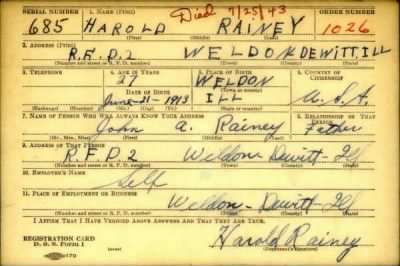 SERIAL NUMBER 1. NAME (Print) Died 7/25/43 ORDER NUMBER
685 HAROLD RAINEY 1026
(First) (Middle) (Last)
2. ADDRESS (Print)
R.F.D. 2 WELDON DEWITT ILL
(Number and street or R. F. D. number) (Town) (County) (State)
3. TELEPHONE 4. AGE IN YEARS 5. PLACE OF BIRTH 6. COUNTRY OF CITIZENSHIP
27 WELDON
DATE OF BIRTH (Town or county)
June-21-1913 ILL U.S.A.
(Exchange) (Number) (Mo.) (Day) (Yr.) (State or country)
7. NAME OF PERSON WHO WILL ALWAYS KNOW YOUR ADDRESS 8. RELATIONSHIP OF THAT PERSON
John A. Rainey Father
(Mr., Mrs., Miss) (First) (Middle) (Last)
9. ADDRESS OF THAT PERSON
R.F.D. 2 Weldon-Dewitt-Ill
(Number and street or R. F. D. number) (Town) (County) (State)
10. EMPLOYER'S NAME
Self
11. PLACE OF EMPLOYMENT OR BUSINESS
Weldon-Dewitt-Ill
(Number and street or R. F. D. number) (Town) (County) (State)
I AFFIRM THAT I HAVE VERIFIED ABOVE ANSWERS AND THAT THEY ARE TRUE.
REGISTRATION CARD
D. S. S. Form 1 Harold Rainey
(Registrant's signature)